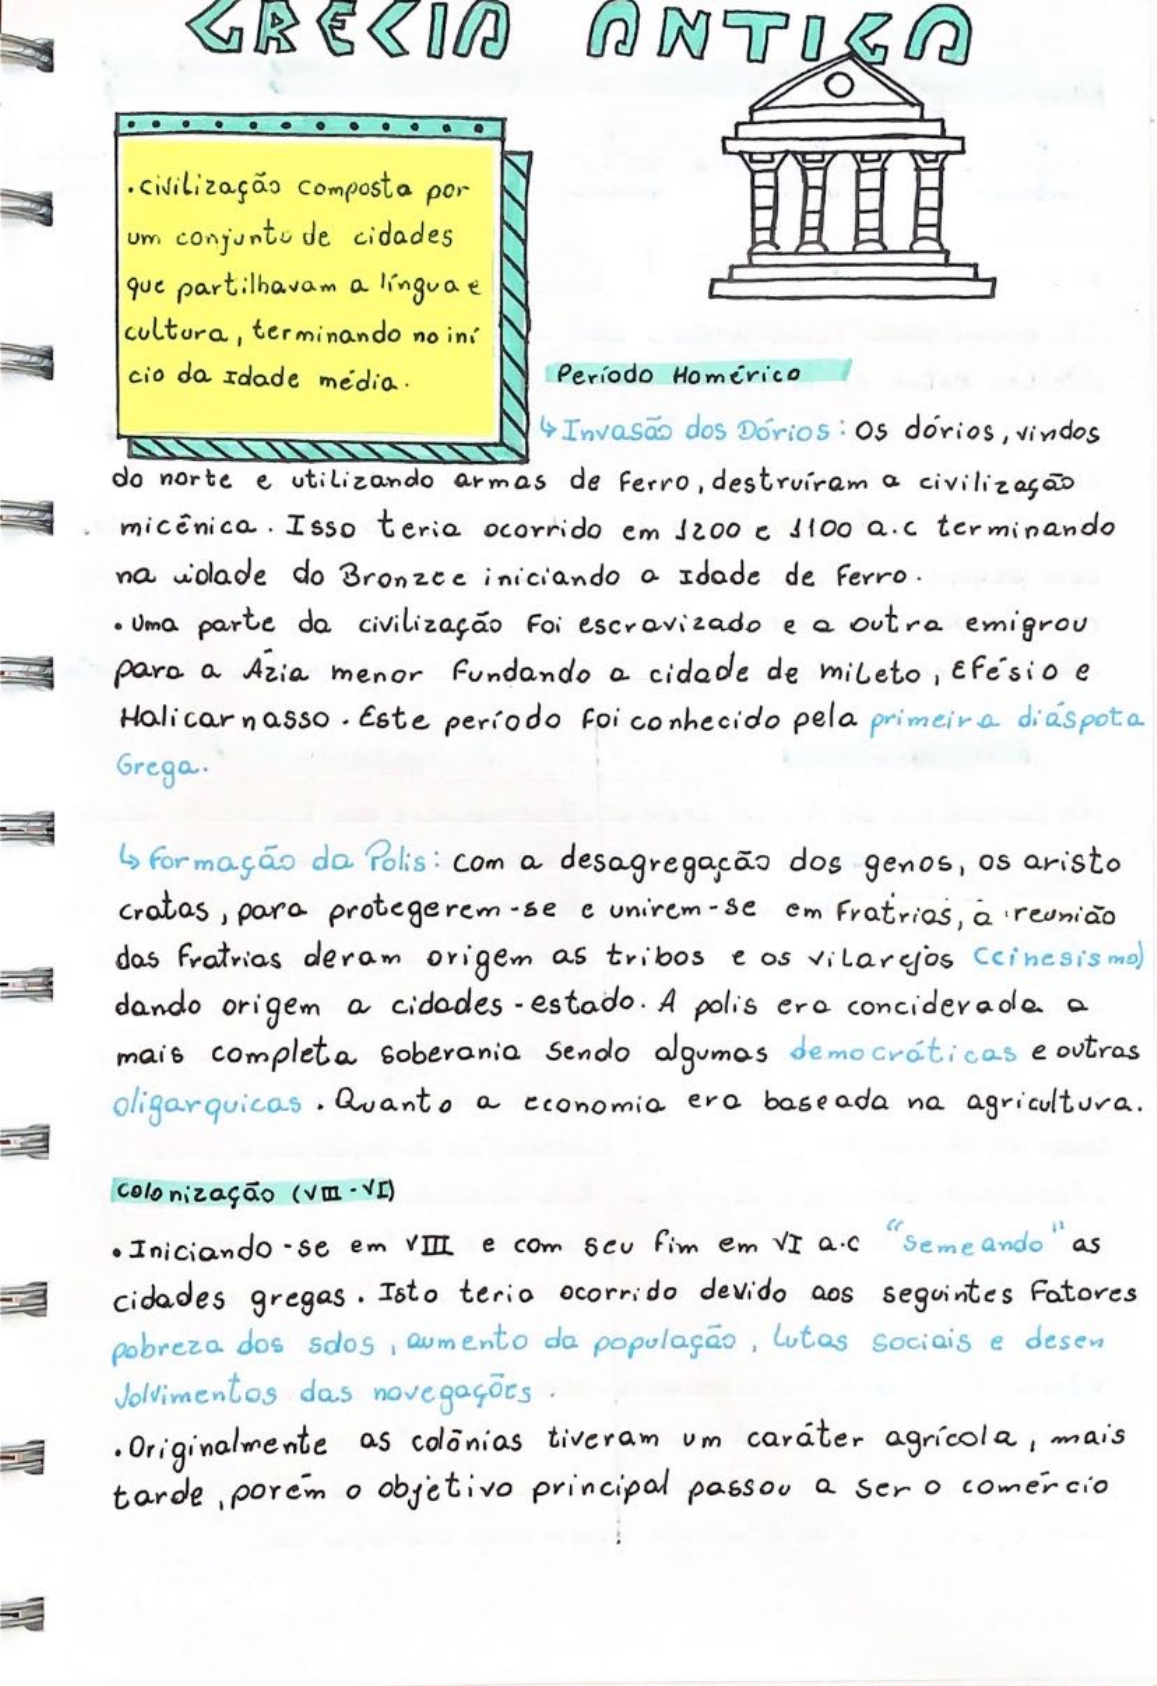 GRECIA ANTIGA
.civilização composta por
um conjunto de cidades
que partilhavam a língua e
cultura, terminando no iní
cio da Idade média.
Período Homérico
↳Invasão dos Dórios: Os dórios, vindos
do norte e utilizando armas de ferro, destruíram a civilização
micênica. Isso teria ocorrido em 1200 e 1100 a.c terminando
na idade do Bronze e iniciando a Idade de ferro.
• Uma parte da civilização foi escravizado e a outra emigrou
para a Ázia menor fundando a cidade de mileto, Efésio e
Halicarnasso. Este período foi conhecido pela primeira diáspota
Grega.
↳ formação da Polis: com a desagregação dos genos, os aristo
cratas, para protegerem-se e unirem-se em fratrias, a reunião
das fratrias deram origem as tribos e os vilarejos (cinesismo)
dando origem a cidades-estado. A polis era conciderada a
mais completa soberania sendo algumas democráticas e outras
oligarquicas. Quanto a economia era baseada na agricultura.
Colonização (VIII-VI)
• Iniciando-se em VIII e com seu fim em VI a.c "semeando" as
cidades gregas. Isto teria ocorrido devido aos seguintes fatores
pobreza dos sdos, aumento da população, lutas sociais e desen
volvimentos das navegações.
.Originalmente as colônias tiveram um caráter agrícola, mais
tarde, porém o objetivo principal passou a ser o comércio